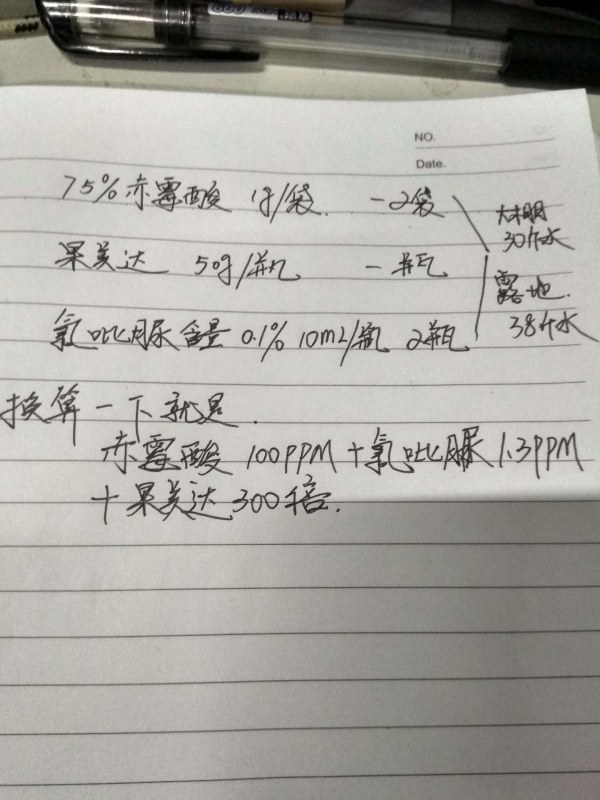 NO.
Date.
75%赤霉酸 1g/袋. -2袋
大棚 30斤水
果美达 50g/瓶 一瓶
露地. 38斤水
氯吡脲含量 0.1% 10ml/瓶 2瓶
换算一下就是.
赤霉酸 100PPM+氯吡脲 1.3PPM
+果美达 300倍.